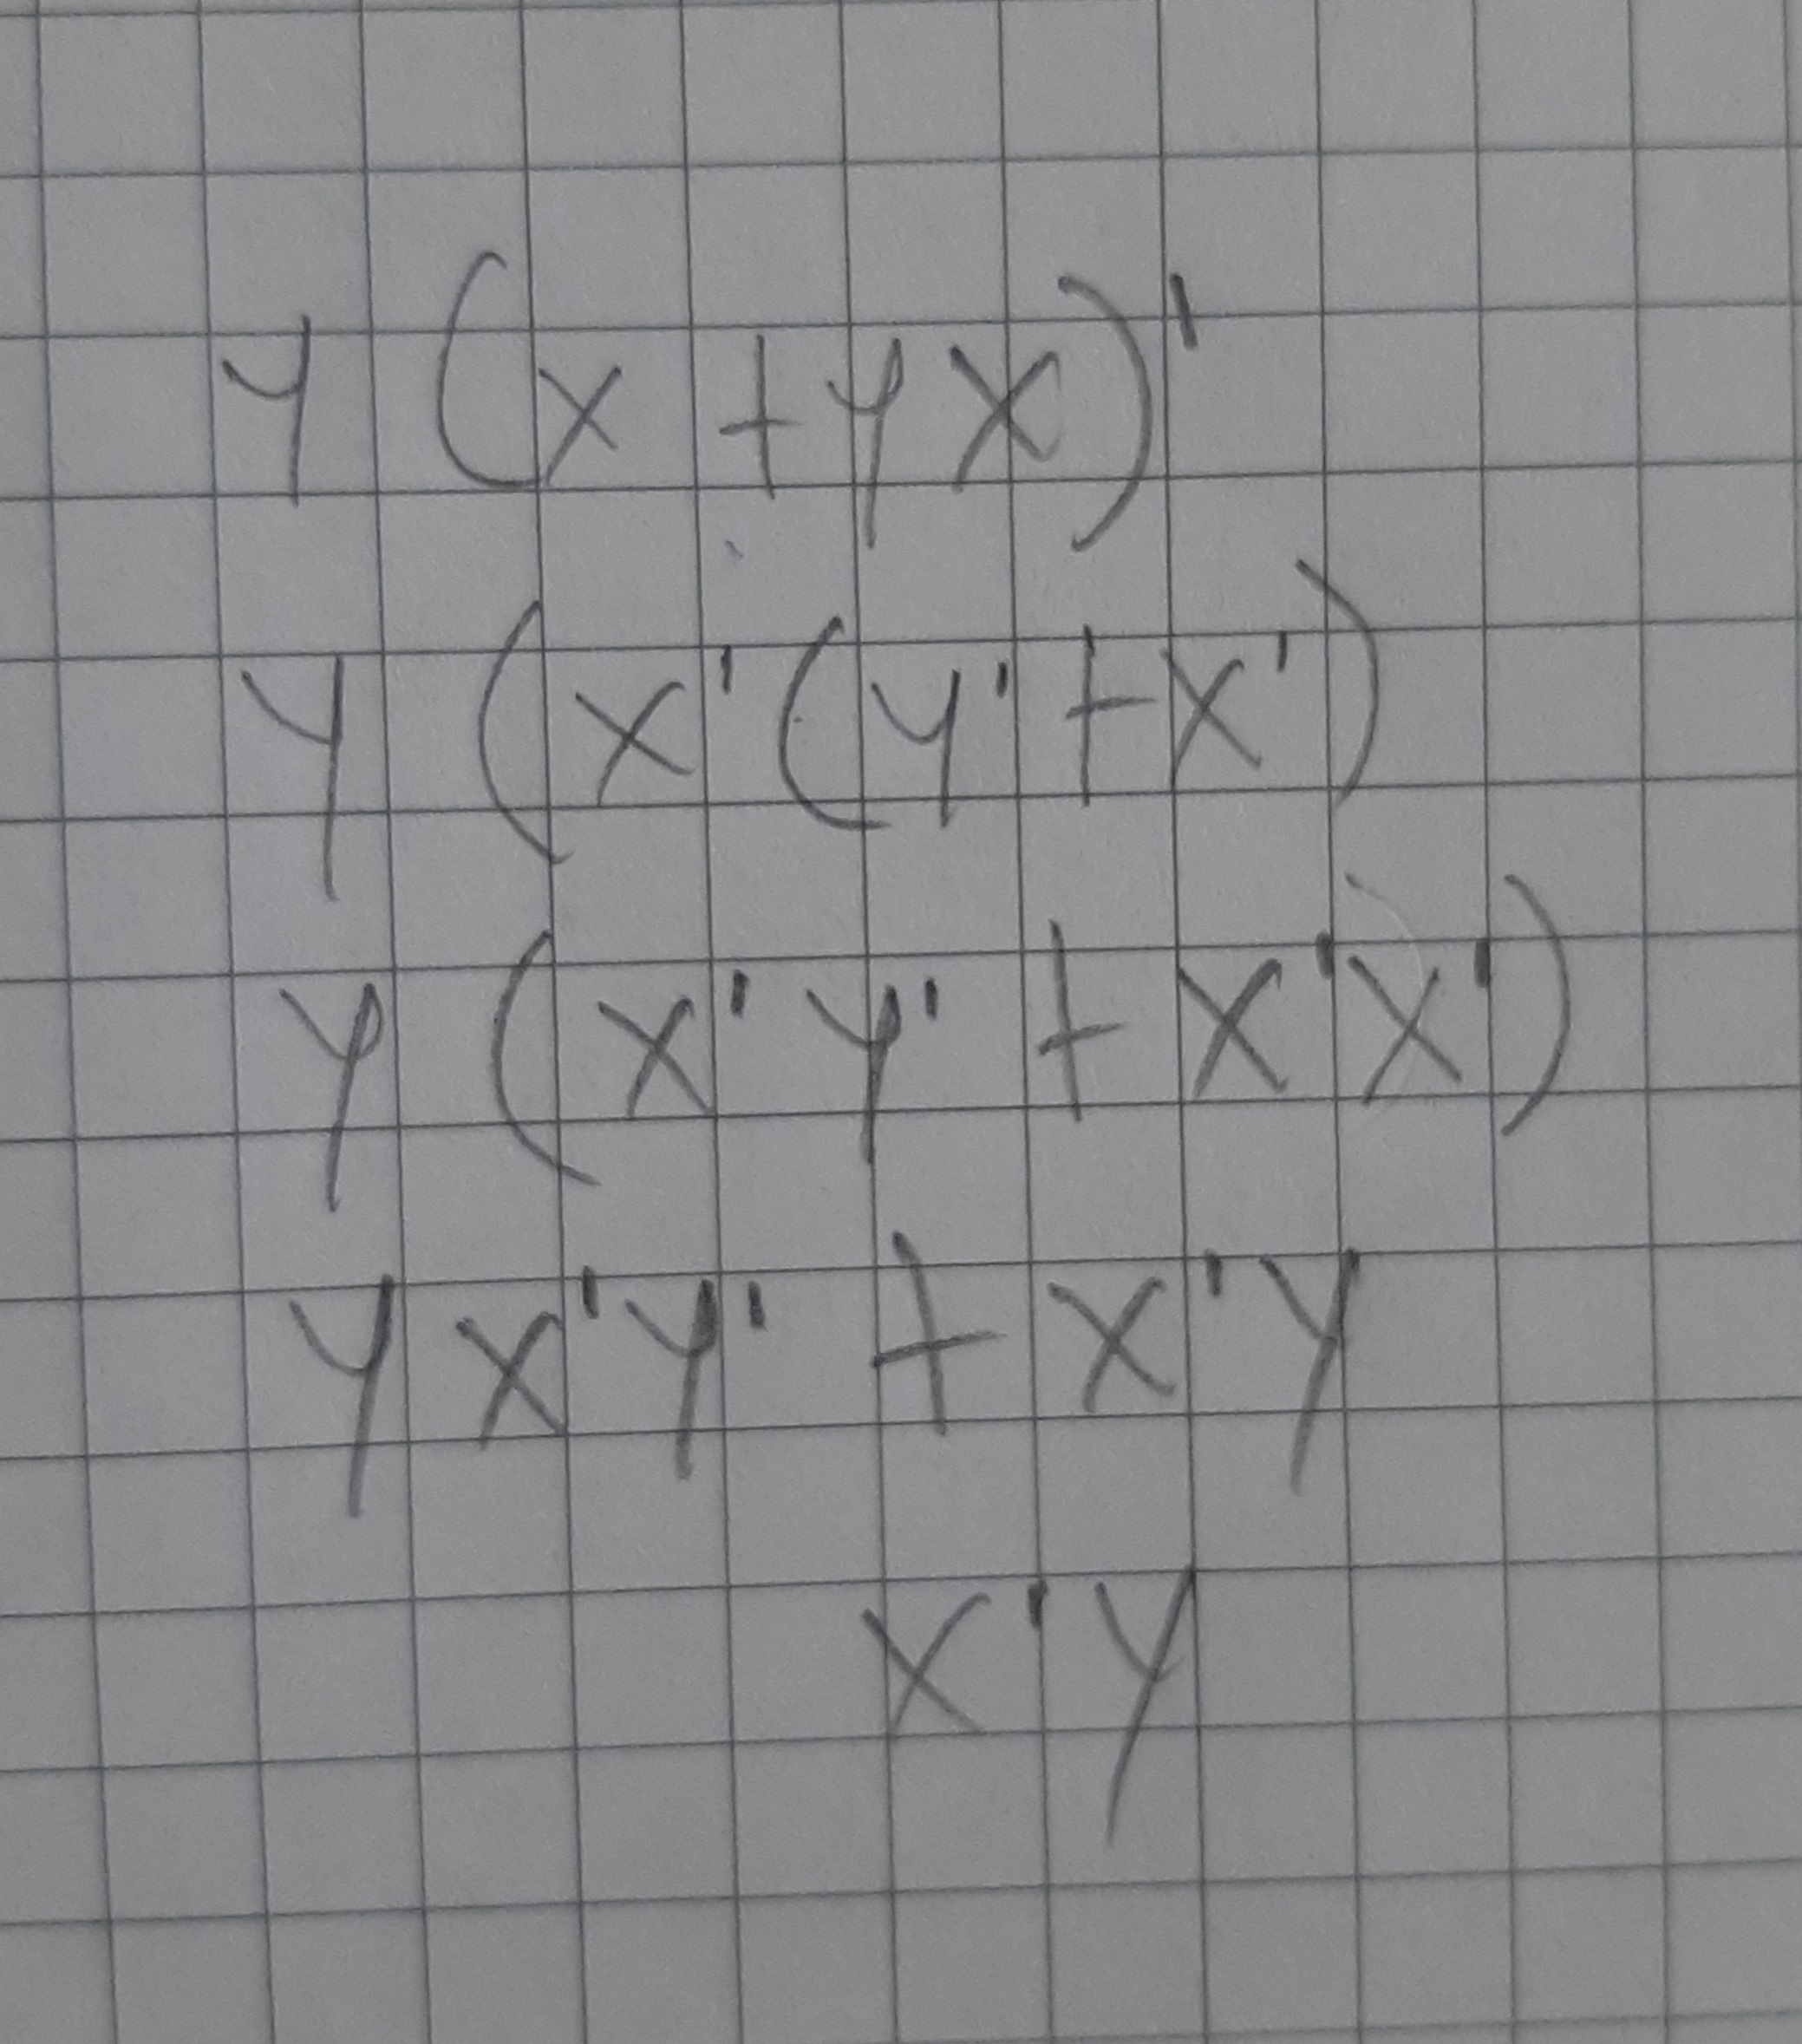 y (x + yx)'
y (x' (y' + x')
y (x' y' + x' x')
y x' y' + x' y
x' y